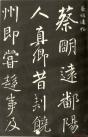 蔡明遠鄱陽
人真卿昔刾饒
州即嘗趨事及